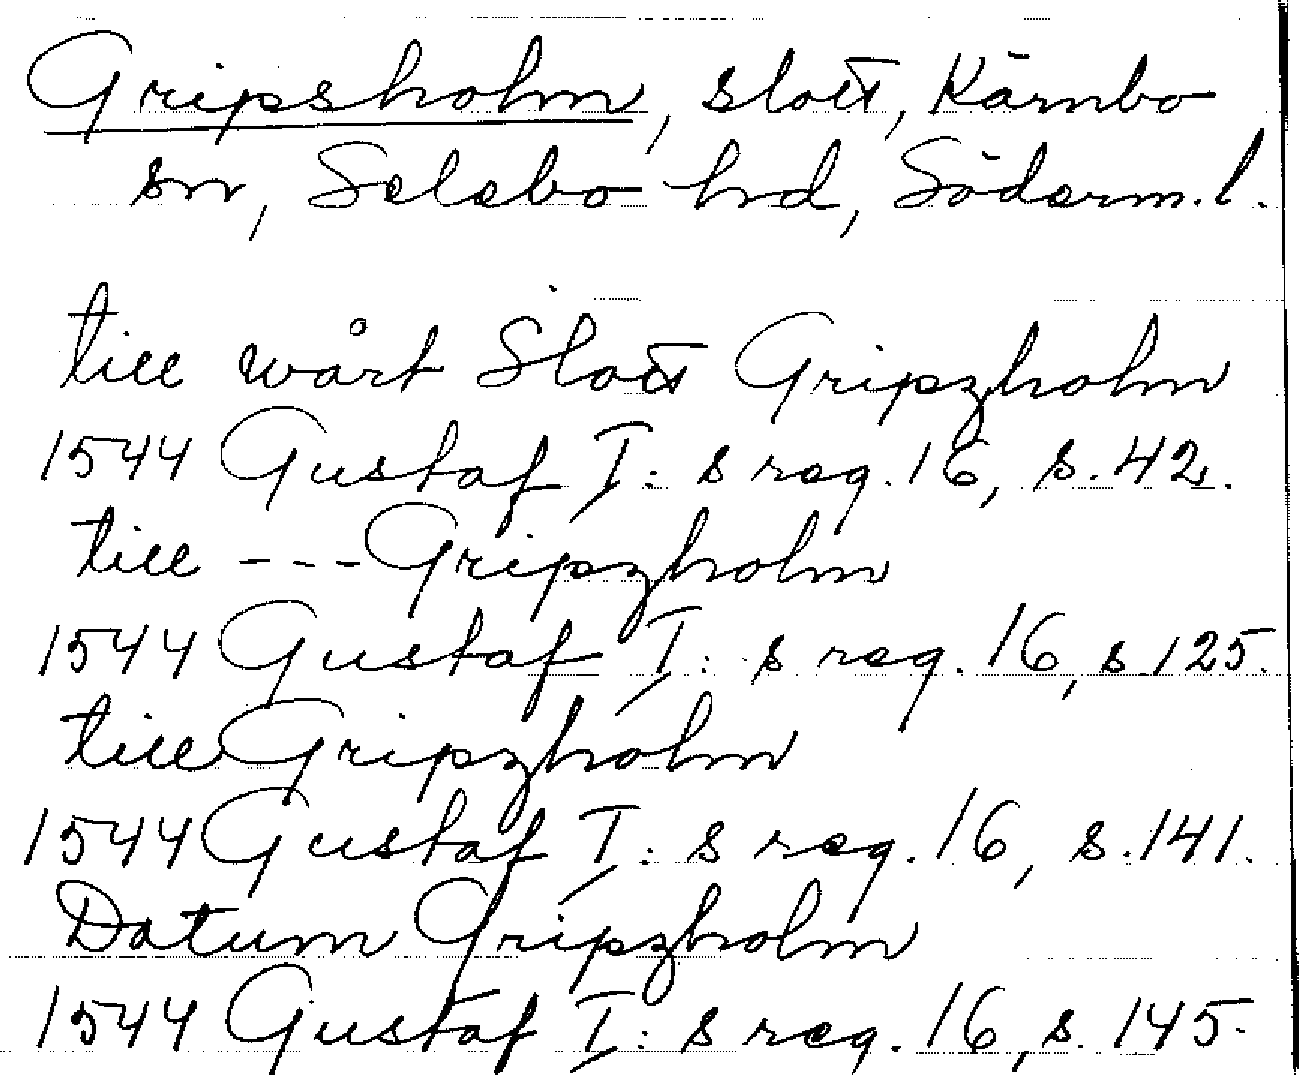 Gripsholm, slott, Kärnbo
sn, Selebo hd, Söderm.l.
till wårt Slott Gripzholm
1544 Gustaf I:s reg. 16, s. 42.
till --- Gripzholm
1544 Gustaf I:s reg. 16, s. 125.
till Gripzholm
1544 Gustaf I:s reg. 16, s. 141.
Datum Gripzholm
1544 Gustaf I:s reg. 16, s. 145.